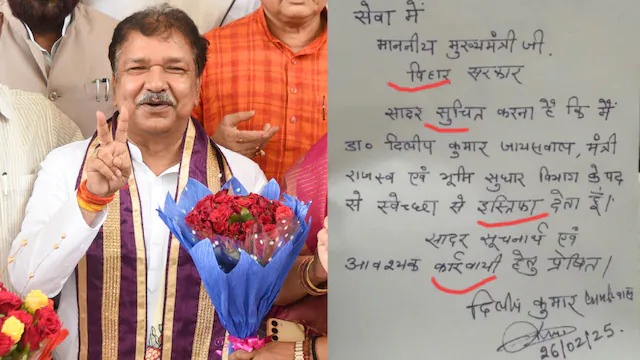 सेवा में
माननीय मुख्यमंत्री जी.
विहार सरकार
सादर सुचित करना है कि मैं
डा० दिलीप कुमार जायसवाल, मंत्री
राजस्व एवं भूमि सुधार विभाग के पद
से स्वेच्छा से इस्तिफा देता हूँ।
सादर सूचनार्थ एवं
आवश्यक कार्रवायी हेतु प्रेषित।
दिलीप कुमार जायसवाल
26/02/25.